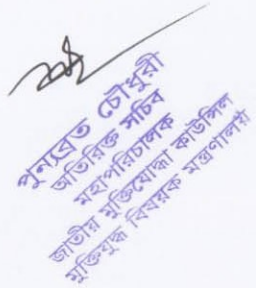 পুণ্যব্রত চৌধুরী
অতিরিক্ত সচিব
মহাপরিচালক
জাতীয় মুক্তিযোদ্ধা কাউন্সিল
মুক্তিযুদ্ধ বিষয়ক মন্ত্রণালয়